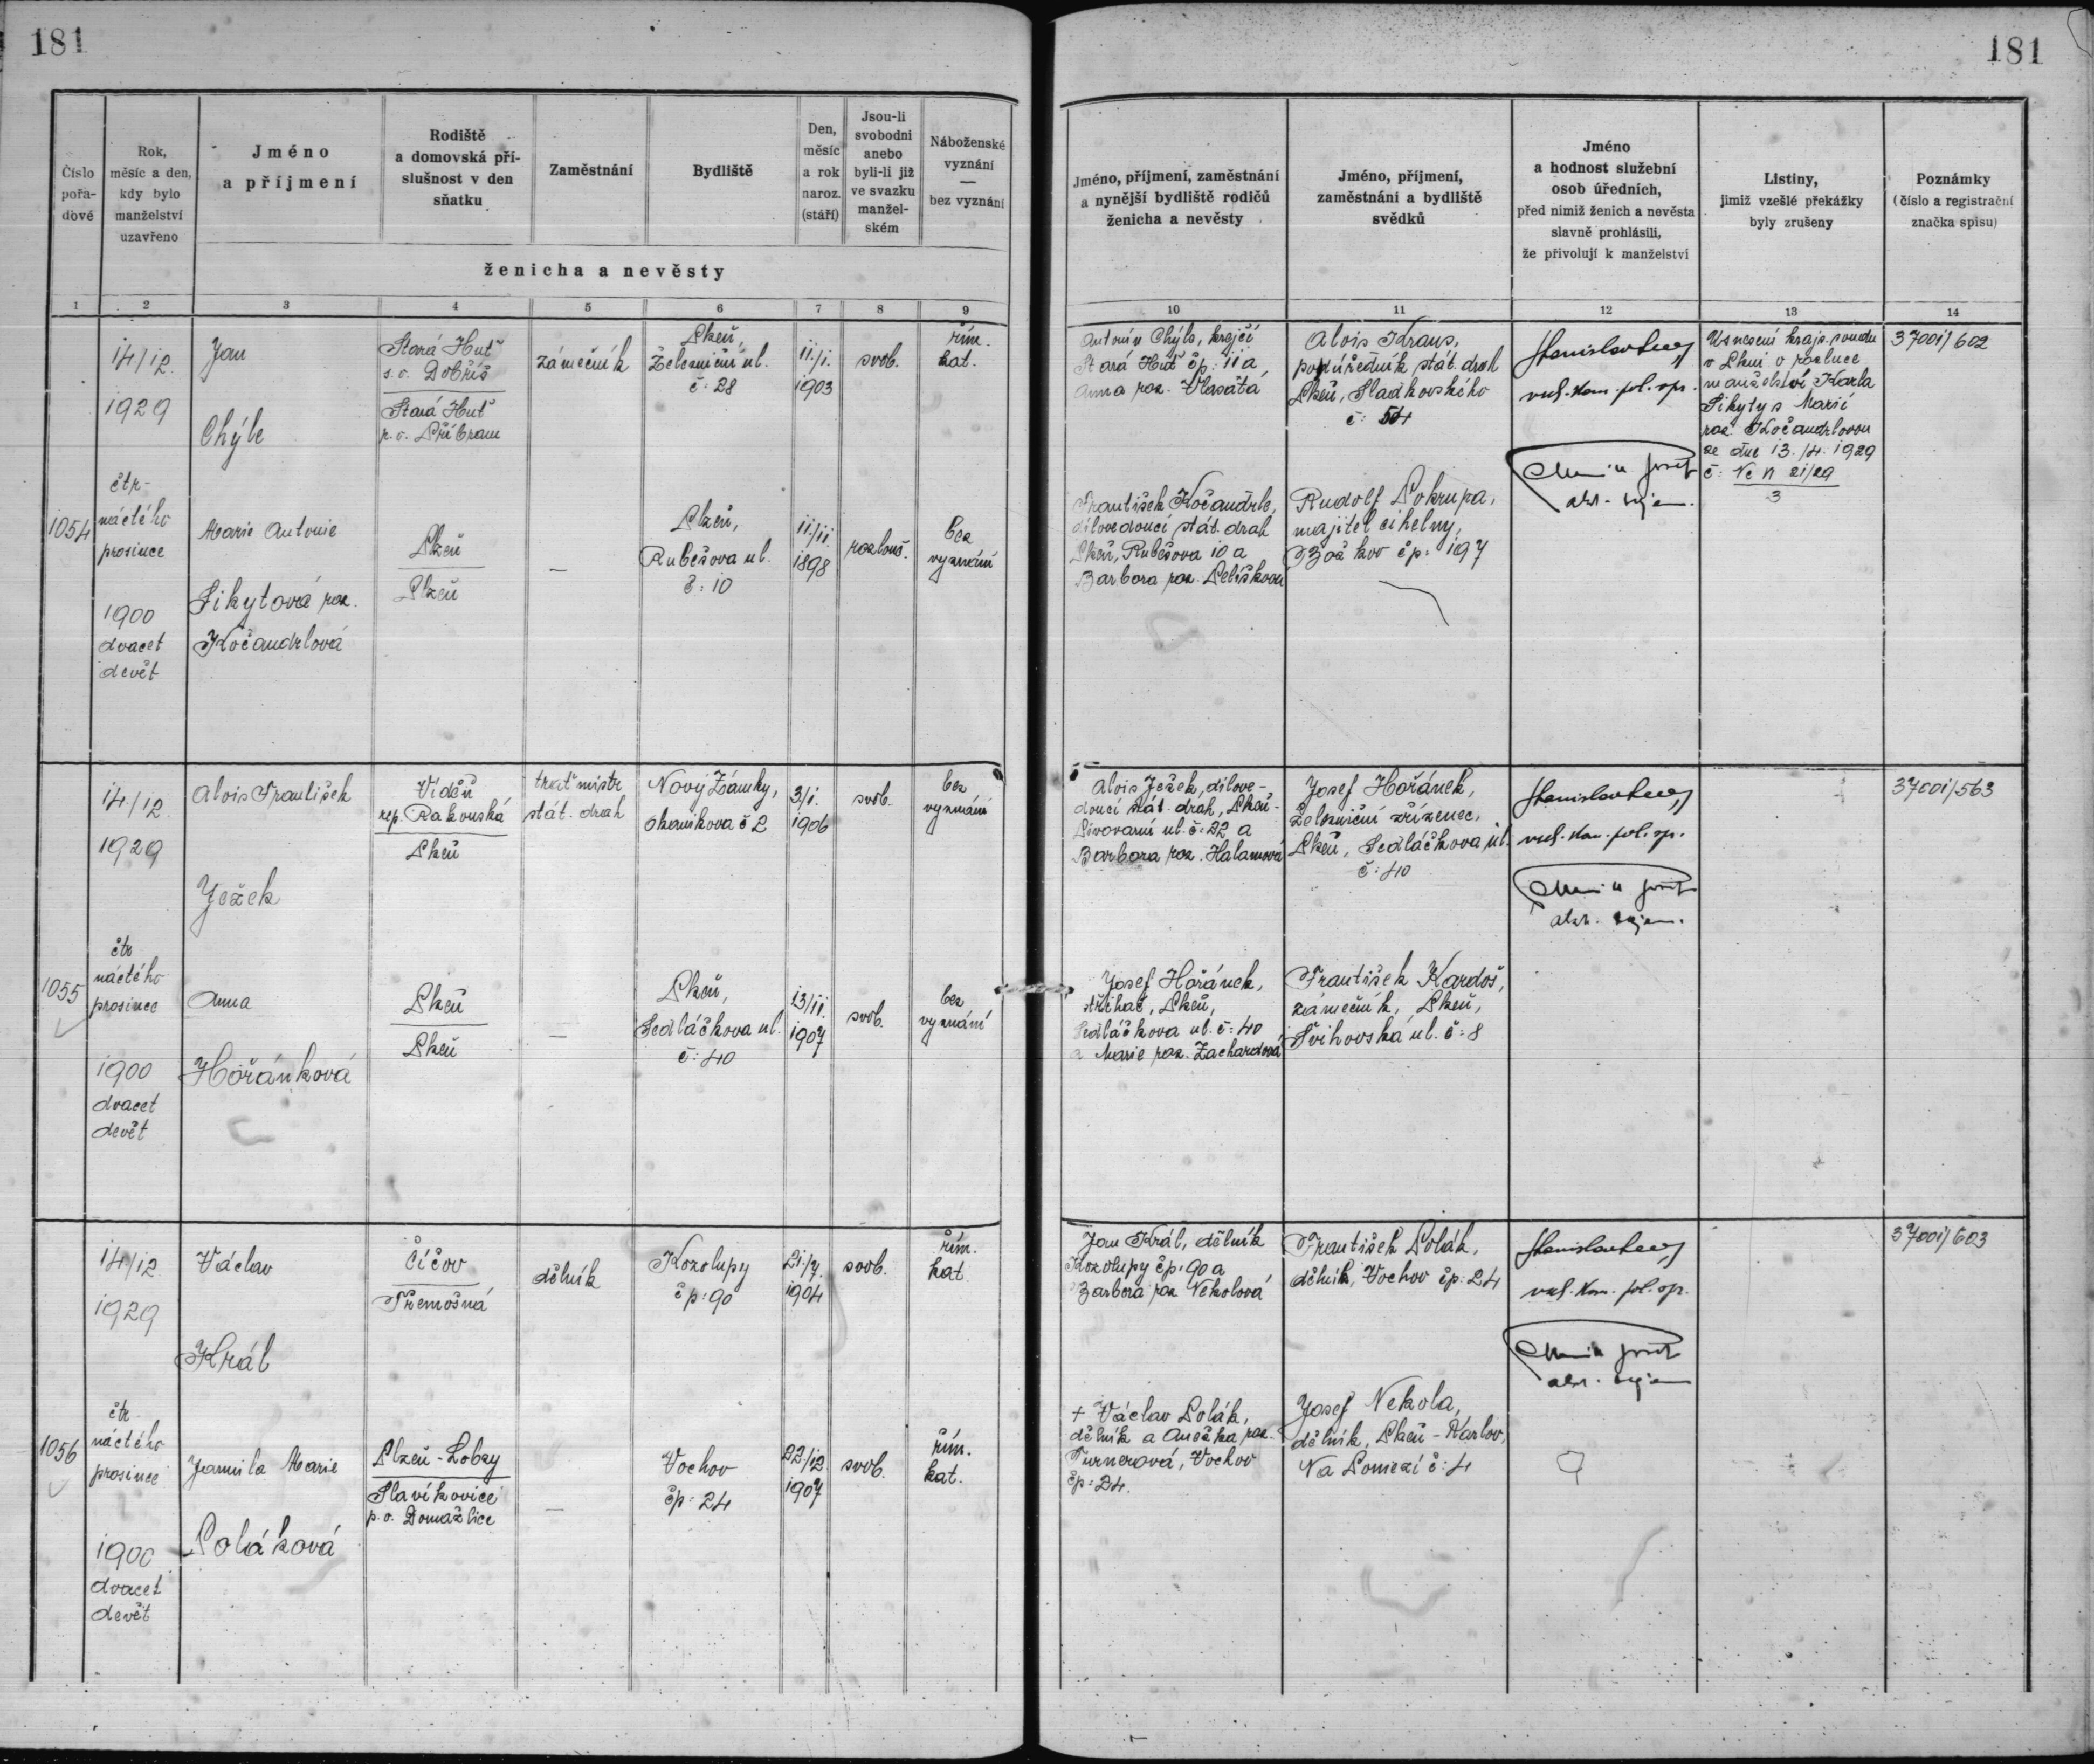 181
181
Číslo pořa-dové
Rok, měsíc a den, kdy bylo manželství uzavřeno
Jméno a příjmení
Rodiště a domovská pří-slušnost v den sňatku
Zaměstnání
Bydliště
Den, měsíc a rok naroz. (stáří)
Jsou-li svobodni anebo byli-li již ve svazku manžel-ském
Náboženské vyznání — bez vyznání
ženicha a nevěsty
Jméno, příjmení, zaměstnání a nynější bydliště rodičů ženicha a nevěsty
Jméno, příjmení, zaměstnání a bydliště svědků
Jméno a hodnost služební osob úředních, před nimiž ženich a nevěsta slavně prohlásili, že přivolují k manželství
Listiny, jimiž vzešlé překážky byly zrušeny
Poznámky (číslo a registrační značka spisu)
1 2 3 4 5 6 7 8 9 10 11 12 13 14
1054
14/12.
1929
čtr-
náctého
prosince
1900
dvacet
devět
Jan
Chýle
Stará Huť
s.o. Dobříš
Stará Huť
p.o. Příbram
zámečník
Plzeň,
Železniční ul.
č: 28
11/1.
1903
svob.
řím.
kat.
Marie Antonie
Sikytová roz.
Kočandrlová
Plzeň
Plzeň
—
Plzeň,
Rubešova ul.
č: 10
11/11.
1898
rozlouč.
bez
vyznání
Antonín Chýle, krejčí
Stará Huť čp: 11 a
Anna roz. Vlasatá
František Kočandrle,
dílovedoucí stát. drah
Plzeň, Rubešova 10 a
Barbora roz. Pelíškova
Alois Kraus,
podúředník stát. drah
Plzeň, Sladkovského
č: 54
Rudolf Pokrupa,
majitel cihelny,
Božkov čp: 197
vrch. kom. pol. spr.
Usnesení krajs. soudu
v Plzni o rozluce
manželství Karla
Sikyty s Marií
roz. Kočandrlovou
ze dne 13./4. 1929
č: Nc II 21/29
3
37001/602
1055
14./12.
1929
čtr
náctého
prosince
1900
dvacet
devět
Alois František
Ježek
Vídeň
rep. Rakouská
Plzeň
trať mistr
stát. drah
Nový Zámky,
č 2
3/1.
1906
svob.
bez
vyznání
Anna
Hořánková
Plzeň
Plzeň
—
Plzeň,
Sedláčkova ul.
č: 40
13/11.
1907
svob.
bez
vyznání
Alois Ježek, dílove-
doucí stát. drah, Plzeň -
Pivovarní ul. č: 22 a
Barbora roz. Halamová
Josef Hořánek,
Plzeň,
Sedláčkova ul. č: 40
a Marie roz. Zachardová
Josef Hořánek,
železniční zřízenec,
Plzeň, Sedláčkova ul.
č: 40
František Kardoš,
zámečník, Plzeň,
Švihovská ul. č: 8
vrch. kom. pol. spr.
37001/563
1056
14/12
1929
čtr
náctého
prosince
1900
dvacet
devět
Václav
Král
Číčov
Třemošná
dělník
Kozolupy
čp: 90
21./7.
1904
svob.
řím.
kat.
Jarmila Marie
Poláková
Plzeň - Lobzy
Slavíkovice
p.o. Domažlice
—
Vochov
čp: 24
22/12.
1907
svob.
řím.
kat.
Jan Král, dělník
Kozolupy čp: 90 a
Barbora roz Nekolová
+ Václav Polák,
dělník a Anežka roz.
Turnerová, Vochov
čp: 24.
František Polák,
dělník, Vochov čp: 24
Josef Nekola,
dělník, Plzeň - Karlov,
Na Pomezí č: 4
vrch. kom. pol. spr.
37001/603